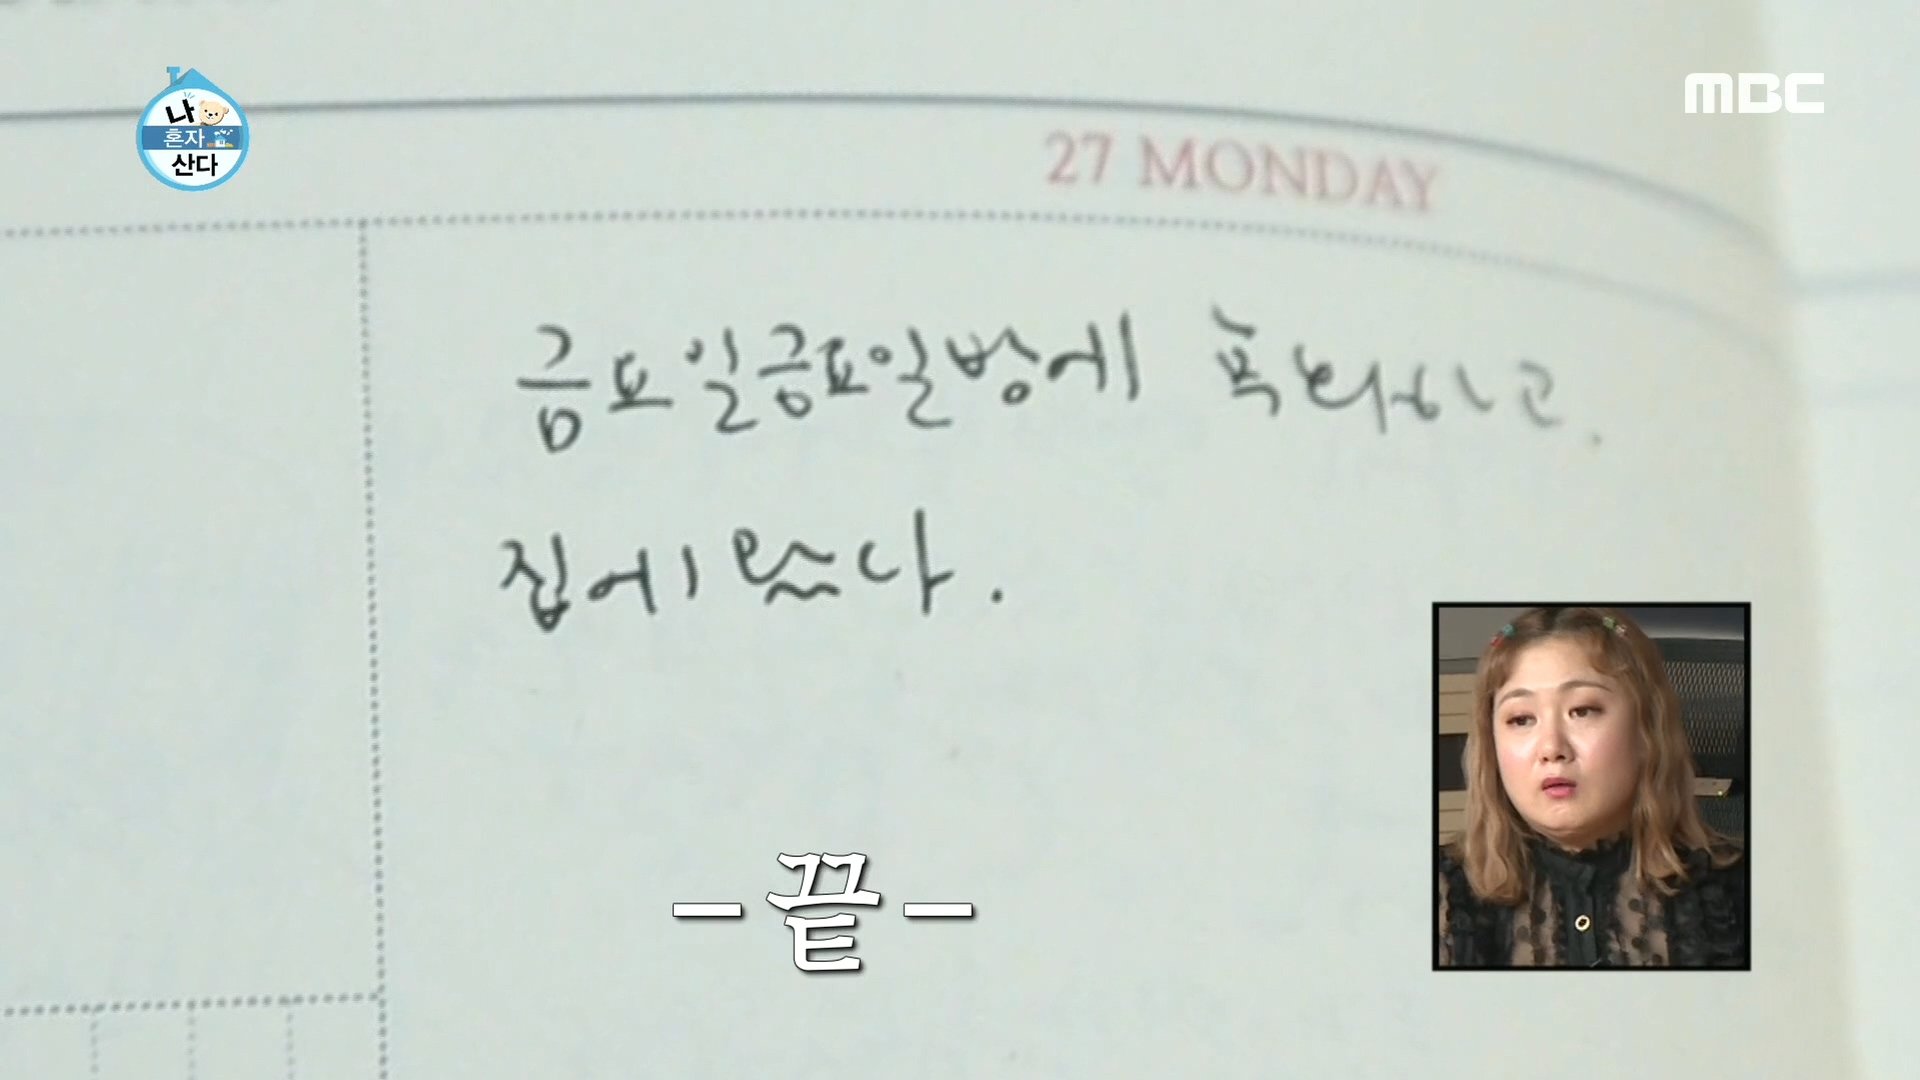 나
혼자
산다
MBC
27 MONDAY
금요일금요일밤에 녹화하고.
집에 왔다.
-끝-